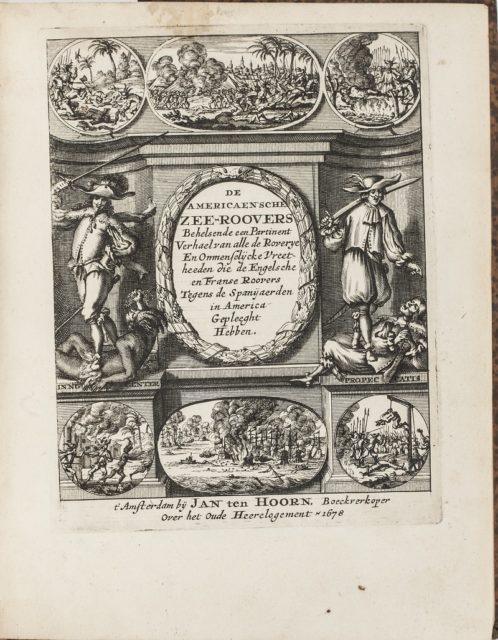 DE
AMERICAENSCHE
ZEE-ROOVERS
Behelsende een Partinent
Verhael van alle de Roverye
En Onmenslijcke Vreet-
heeden die de Engelsche
en Franse Roovers
Tegens de Spanjaerden
in America
Gepleeght
Hebben.
INNO CENTER
PRO PEC CATIS
t'Amsterdam bij JAN ten HOORN. Boeckverkoper
Over het Oude Heerelogement 1678